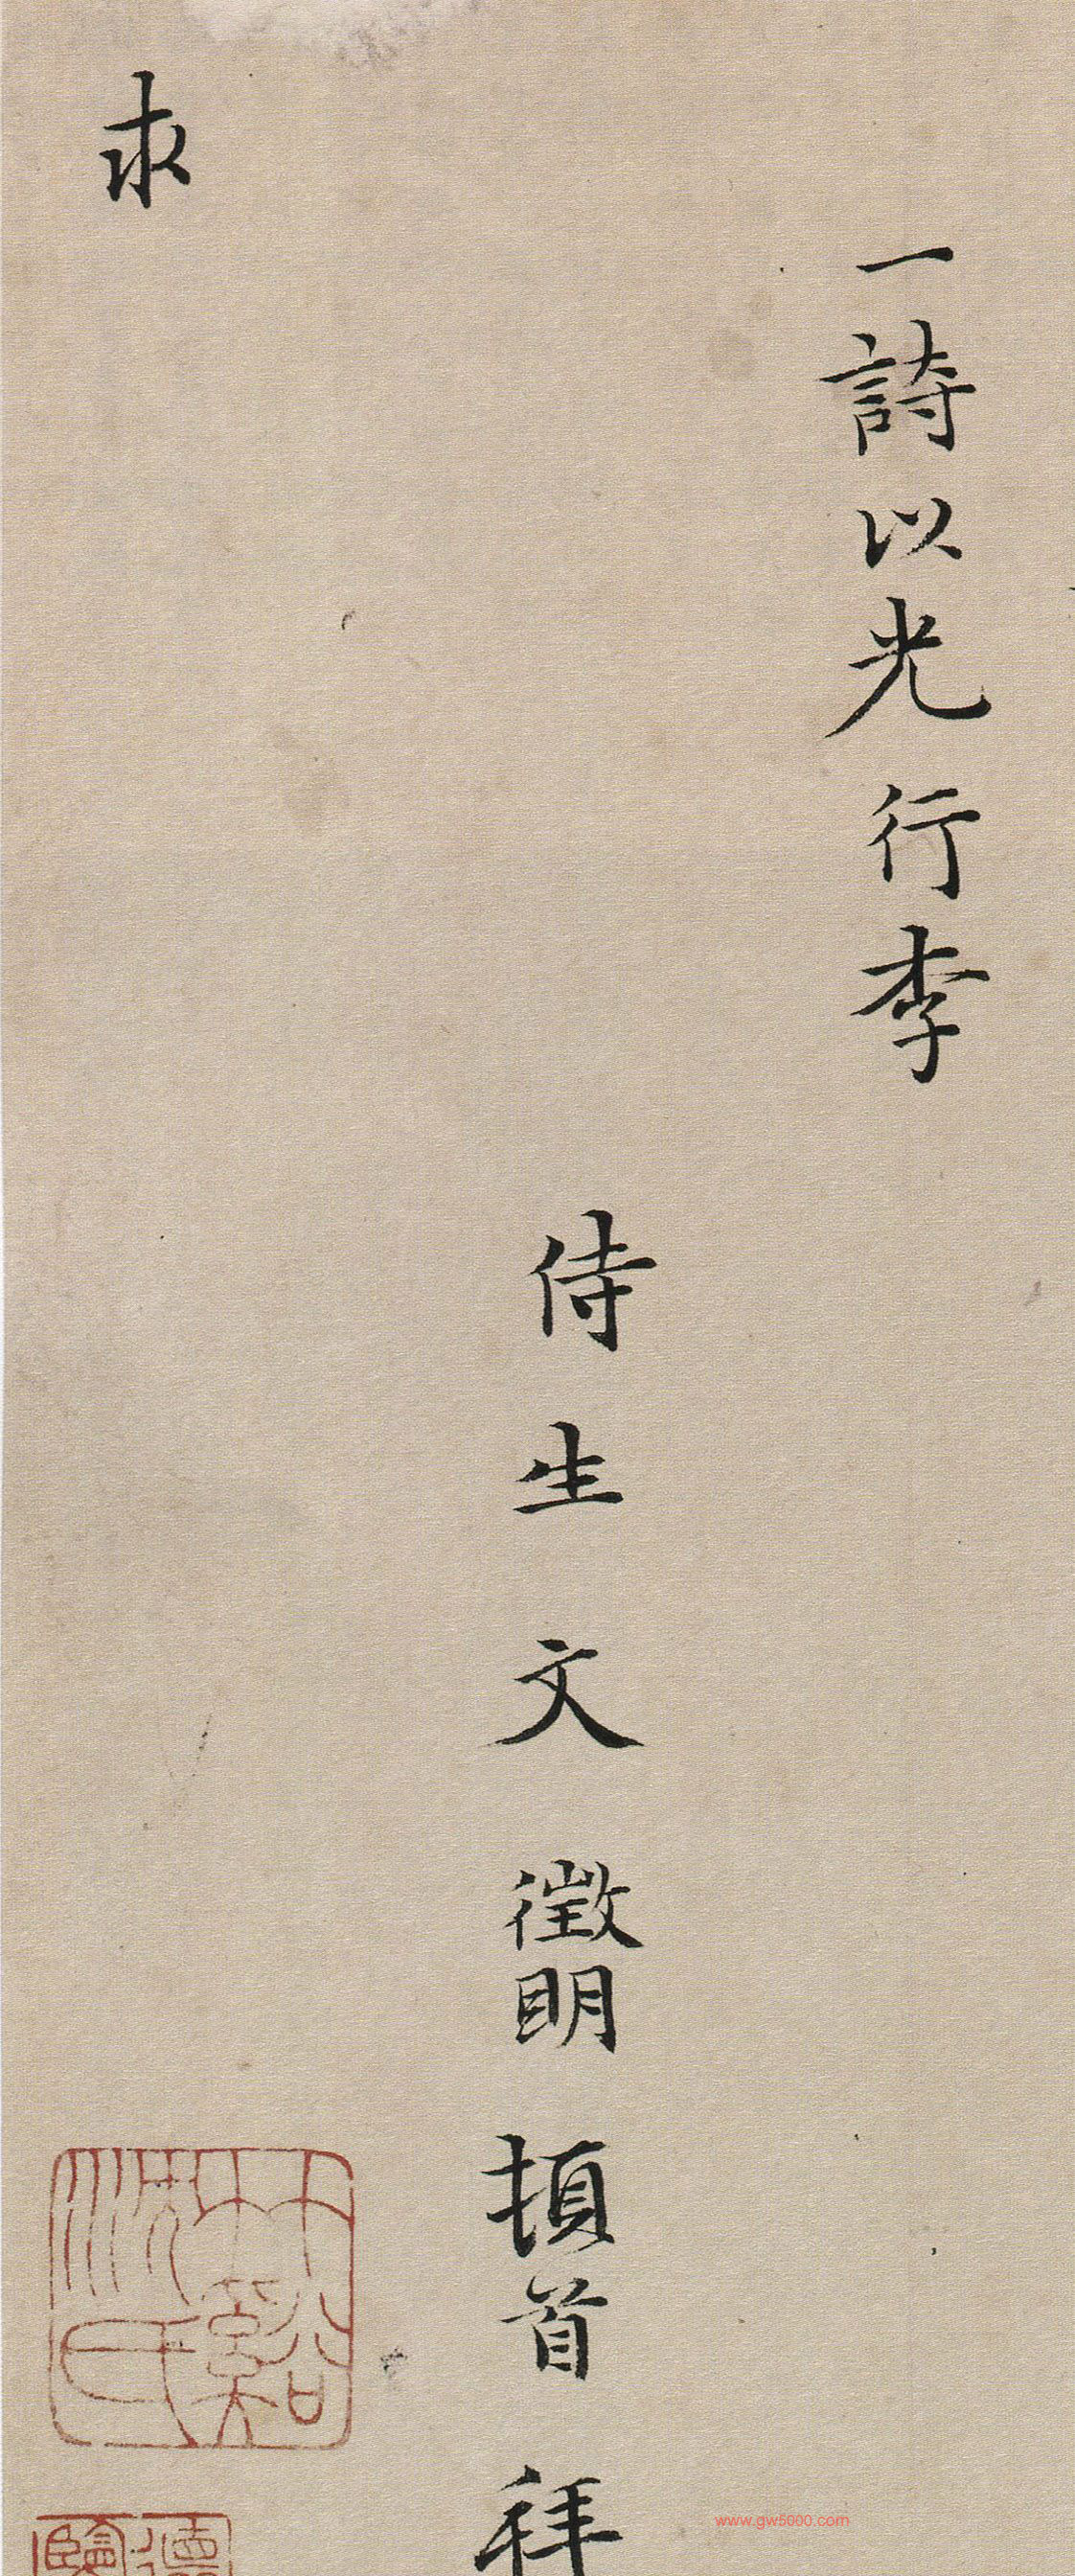 一詩以光行李
侍生文徵明頓首拜
求
www.gw5000.com